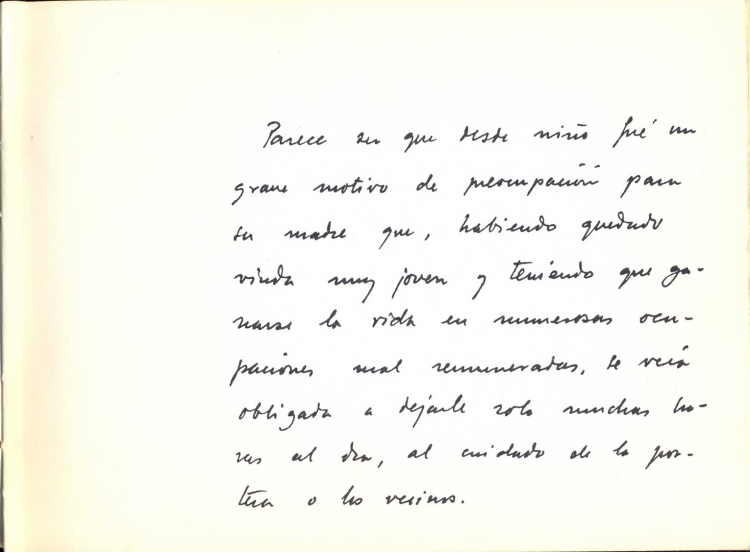 Parece ser que desde niño fué un
grave motivo de preocupación para
su madre que, habiendo quedado
viuda muy joven y teniendo que ga-
narse la vida en numerosas ocu-
paciones mal remuneradas, se veía
obligada a dejarle solo muchas ho-
ras al día, al cuidado de la por-
tera o los vecinos.